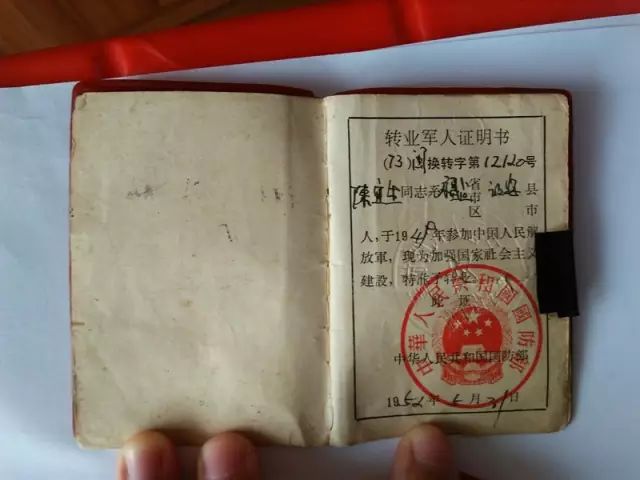 转业军人证明书
(73)闽换转字第12120号
陈 同志系福建省 县
市
区 市
人,于1949年参加中国人民解
放軍,现为加强国家社会主义
建設,特准予转业。
此证
中华人民共和国国防部
1952年 月31日
中華人民共和國國防部